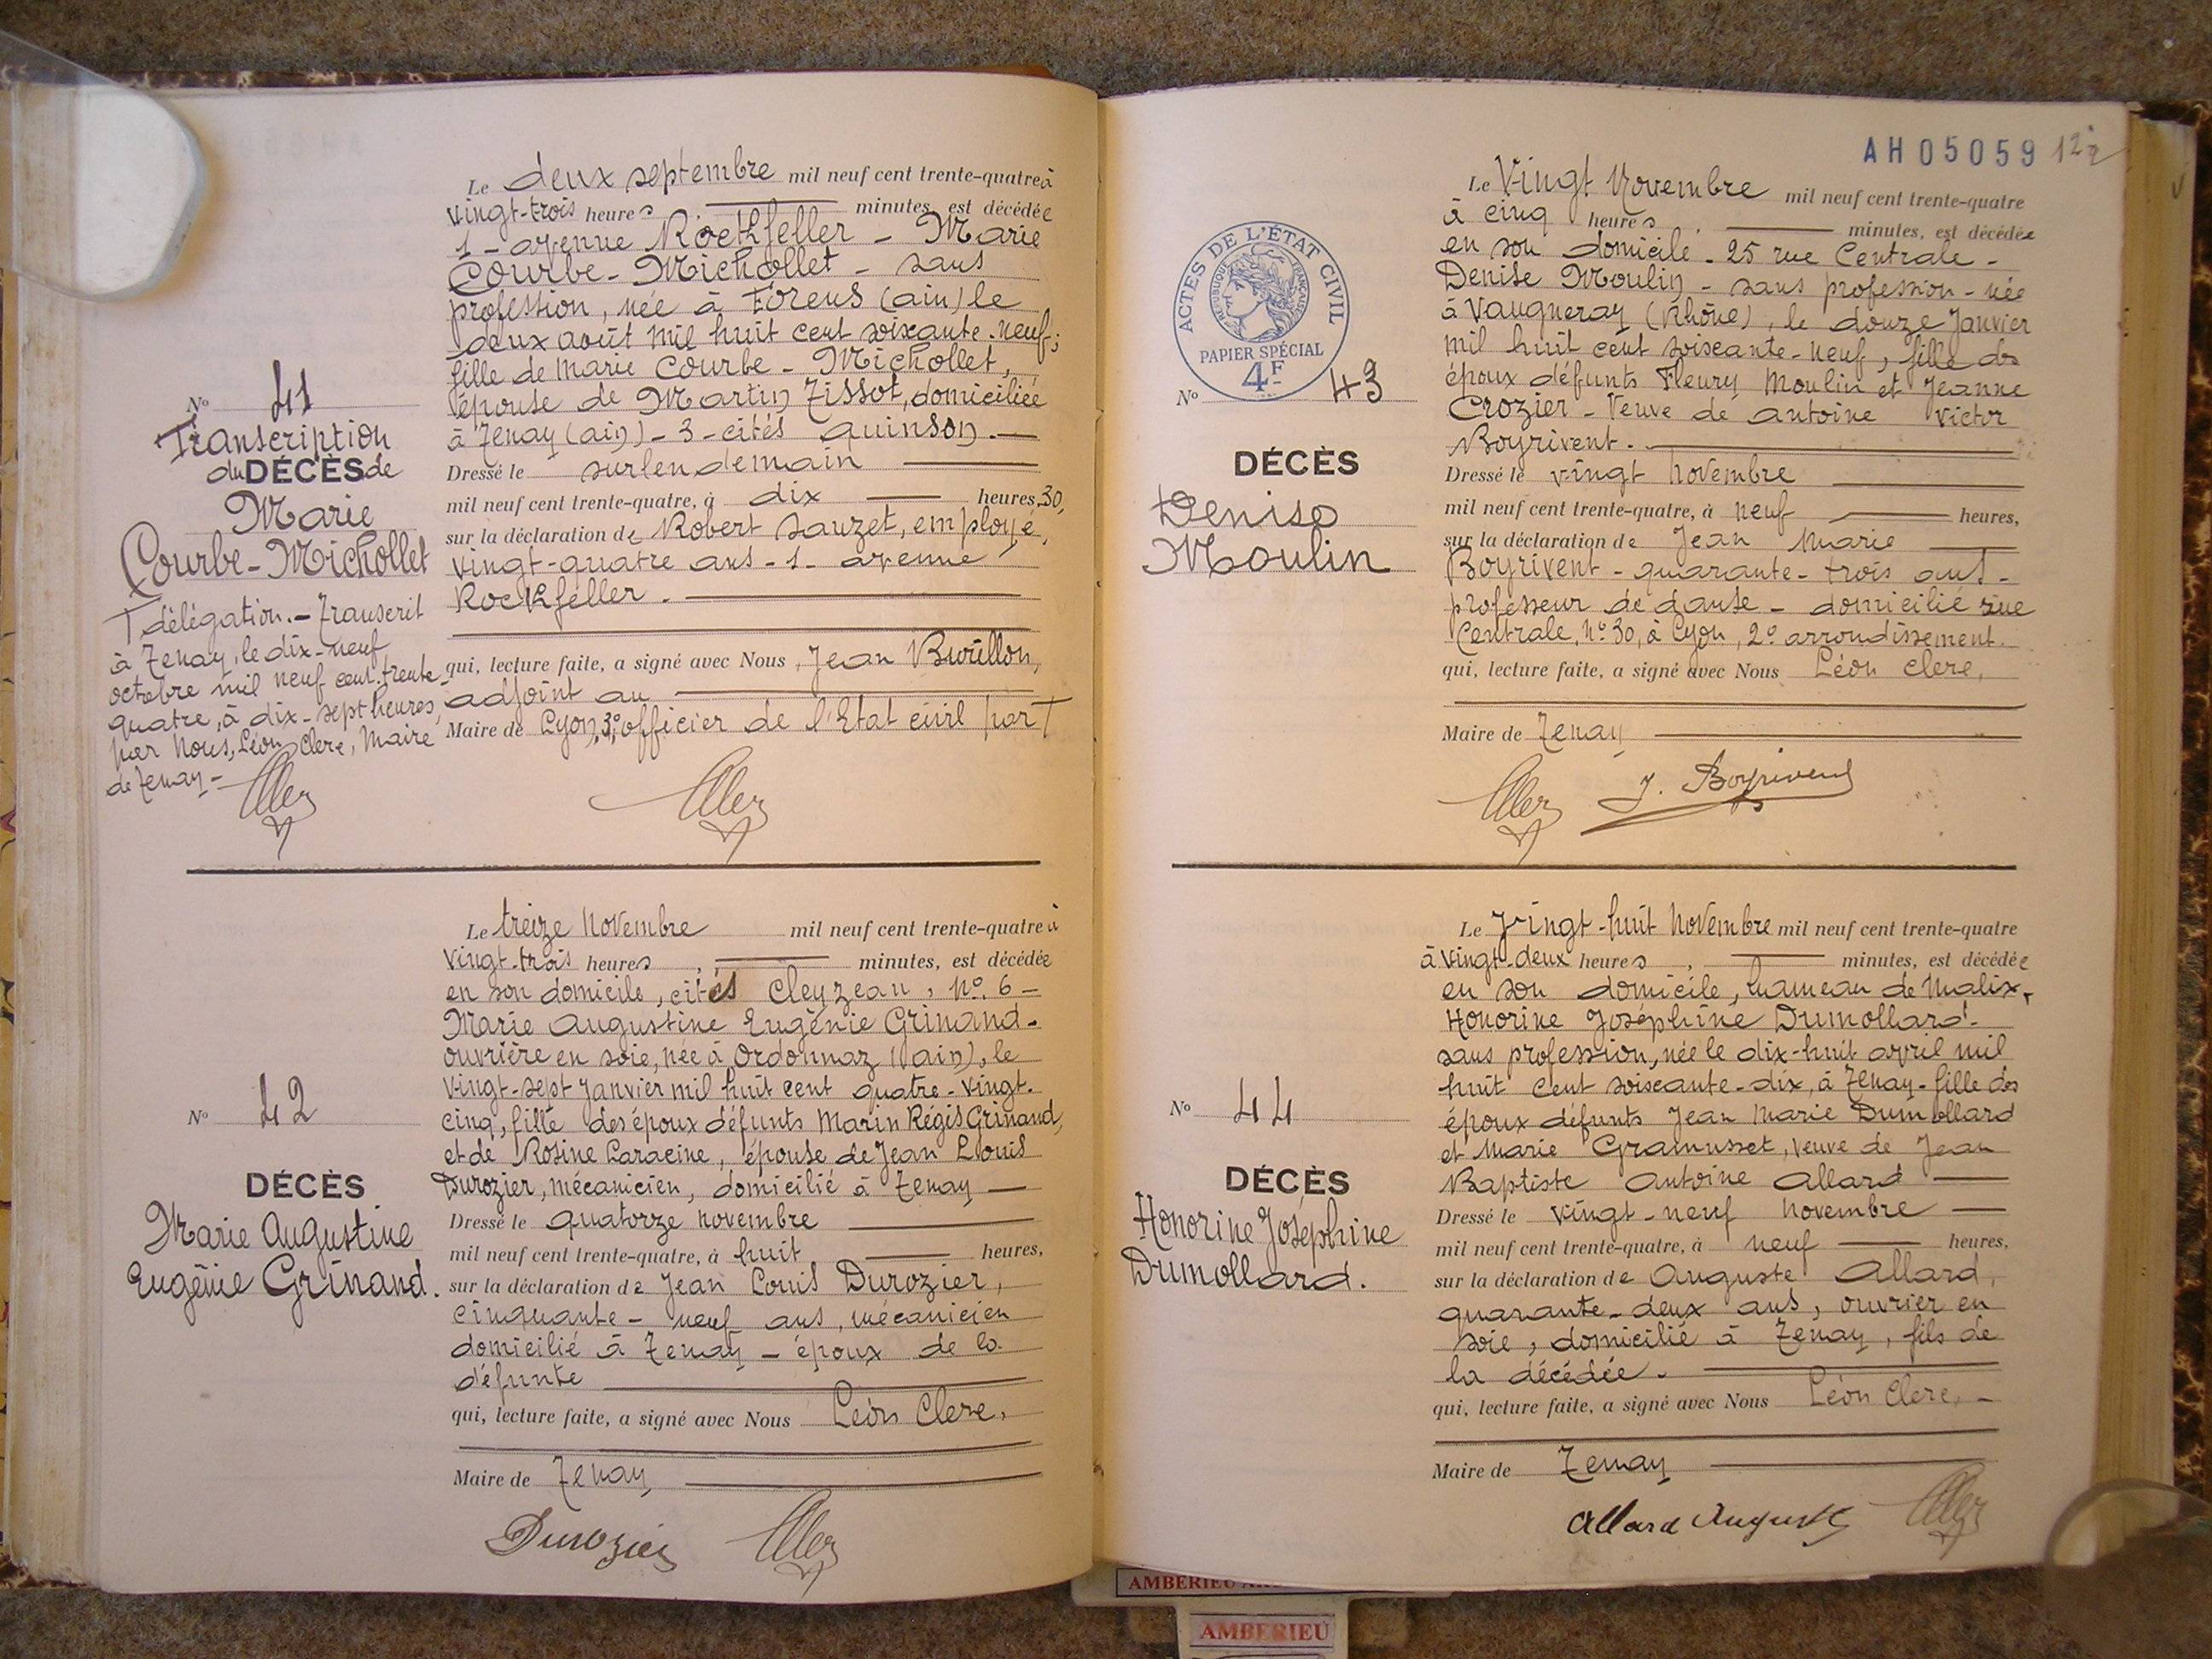 Le deux septembre mil neuf cent trente-quatre à
vingt-trois heures, minutes, est décédée
1 - avenue Rockfeller - Marie
Courbe-Michollet - sans
profession, née à Torens (ain) le
deux août mil huit cent soixante-neuf;
fille de Marie Courbe-Michollet,
épouse de Martin Tissot, domiciliée
à Tenay (ain) - 3 - cités Quinson.
Dressé le surlendemain
mil neuf cent trente-quatre, à dix heures, 30,
sur la déclaration de Robert Sauzet, employé,
vingt-quatre ans - 1 - avenue
Rockfeller.
qui, lecture faite, a signé avec Nous, Jean
adjoint au
Maire de Lyon, 3e, officier de l'Etat civil par T
No 41
Transcription
du DÉCÈS de
Marie
Courbe-Michollet
T délégation. - Transcrit
à Tenay, le dix-neuf
octobre mil neuf cent trente-
quatre, à dix-sept heures,
par Nous, Léon Clerc, Maire
de Tenay -
Le treize Novembre mil neuf cent trente-quatre à
vingt-trois heures, minutes, est décédée
en son domicile, cités Cleyzeau, No. 6 -
Marie Augustine Eugénie Grinand -
ouvrière en soie, née à Ordonnaz (ain), le
vingt-sept Janvier mil huit cent quatre-vingt-
cinq, fille des époux défunts Marin Régis Grinand,
et de Rosine Caracine, épouse de Jean Louis
Durozier, mécanicien, domicilié à Tenay
Dressé le quatorze novembre
mil neuf cent trente-quatre, à huit heures,
sur la déclaration de Jean Louis Durozier,
cinquante-neuf ans, mécanicien
domicilié à Tenay - époux de la
défunte
qui, lecture faite, a signé avec Nous Léon Clerc,
Maire de Tenay
Durozier
No 42
DÉCÈS
Marie Augustine
Eugénie Grinand.
AH05059 122
ACTES DE L'ÉTAT CIVIL
REPUBLIQUE FRANÇAISE
PAPIER SPÉCIAL
4F
No 43
DÉCÈS
Denise
Moulin
Le Vingt Novembre mil neuf cent trente-quatre
à cinq heures, minutes, est décédée
en son domicile - 25 rue Centrale -
Denise Moulin - sans profession - née
à Vaugneray (Rhône), le douze Janvier
mil huit cent soixante-neuf, fille des
époux défunts Fleury Moulin et Jeanne
Crozier - Veuve de antoine Victor
Boyrivent.
Dressé le vingt Novembre
mil neuf cent trente-quatre, à neuf heures,
sur la déclaration de Jean Marie
Boyrivent - quarante-trois ans -
professeur de danse - domicilié rue
Centrale, No 30, à Lyon, 2e arrondissement.
qui, lecture faite, a signé avec Nous Léon Clerc,
Maire de Tenay
J. Boyrivent
Le Vingt-huit Novembre mil neuf cent trente-quatre
à vingt-deux heures, minutes, est décédée
en son domicile, hameau de Malix,
Honorine Joséphine Dumollard -
sans profession, née le dix-huit avril mil
huit cent soixante-dix, à Tenay - fille des
époux défunts Jean Marie Dumollard
et Marie Gramusset, veuve de Jean
Baptiste Antoine Allard
Dressé le vingt-neuf novembre
mil neuf cent trente-quatre, à neuf heures,
sur la déclaration de Auguste Allard,
quarante-deux ans, ouvrier en
soie, domicilié à Tenay, fils de
la décédée.
qui, lecture faite, a signé avec Nous Léon Clerc, -
Maire de Tenay
Allard Auguste
No 44
DÉCÈS
Honorine Joséphine
Dumollard.
AMBERIEU
AMBERIEU